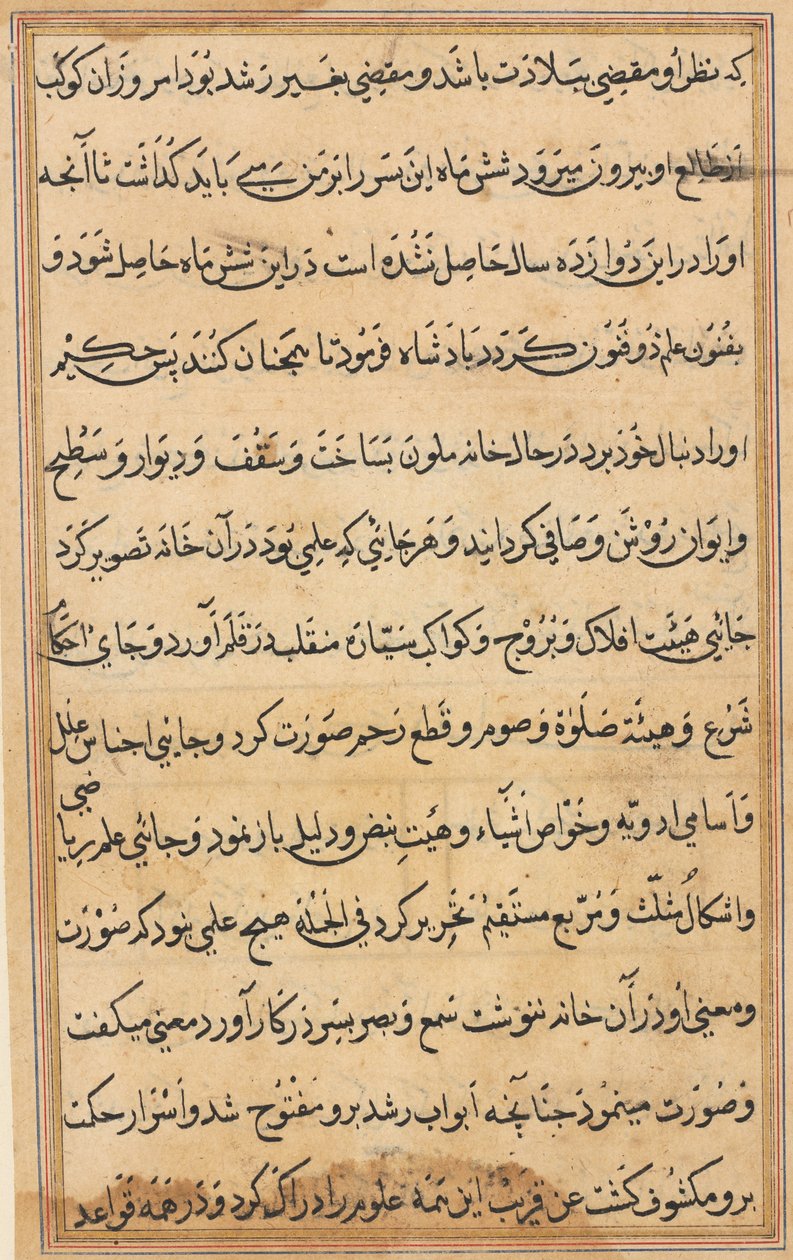 که نظر او مقضي ببلادَت باشَد و مقضِي بغَير رَشد بُوَد امروز آن کوکب
از طالع او بیرون میرَوَد شش مَاه اینَ بسَر را برَمن مے بَایَد کُذاشَت تا آنجه
اورَا در اینَ دُوازَدَه سال حَاصِل نَشُدَه است دَر اینَ شش مَاه حَاصِل شَوَد وَ
بفُنوُن علم ذوُفُنوُن کَردَد بَادَشَاه فَرمُود تا همجنان کُنَند بَس حِکِیْم
اورا دنبال خُوَد برد دَر حال خانه ملوَن بَسَاخَت وَ سَقْفَ وَ دِیوَار وَ سَطِح
و ایوَان رُوْشَن وَ صَافي کردانید وَ هَر جَائِي که عِلمِي بُوَد دَر آن خَانَه تَصویر کَرَد
جَائِي هَیئَت افلاک وَ بُرُوْج وَ کواکب سَیّارَه منقَلب دَر قَلَم آورد وَ جَايُ احکَام
شَرْع وَ هیئَة صَلَوٰة وَ صوم و قَطع رَحم صَوَرَت کرد و جائِي اجناسِ عِلَل
وَ اَسَامي ادویّه و خَوْاص اَشْیَاء و هَیئتِ نبض و دلیل باز نمود وَ جائِي علم رِیاضي
وا شکالُ مثلّث وَ مُرّبع مستَقِیمُ تَحْرِیر کرد في الْجُمْلَة هیج علمي نبود که صُوْرَت
وه معنيِ اُو دَر آن خانه ننوشت سَمع وَ بصرِ بسَر دَر کار آورد معنيِ میکفت
وَ صُوَرَت مینمُوَد جنَانجه اَبواب رشد برو مَفْتُوْح شد و اَسْرَار حکمت
برو مکشُوف کَشت عن قَرِیَبْ این هَمَه علوم را درَاکَ کرد وَ دَر هَمَه قَوَاعد